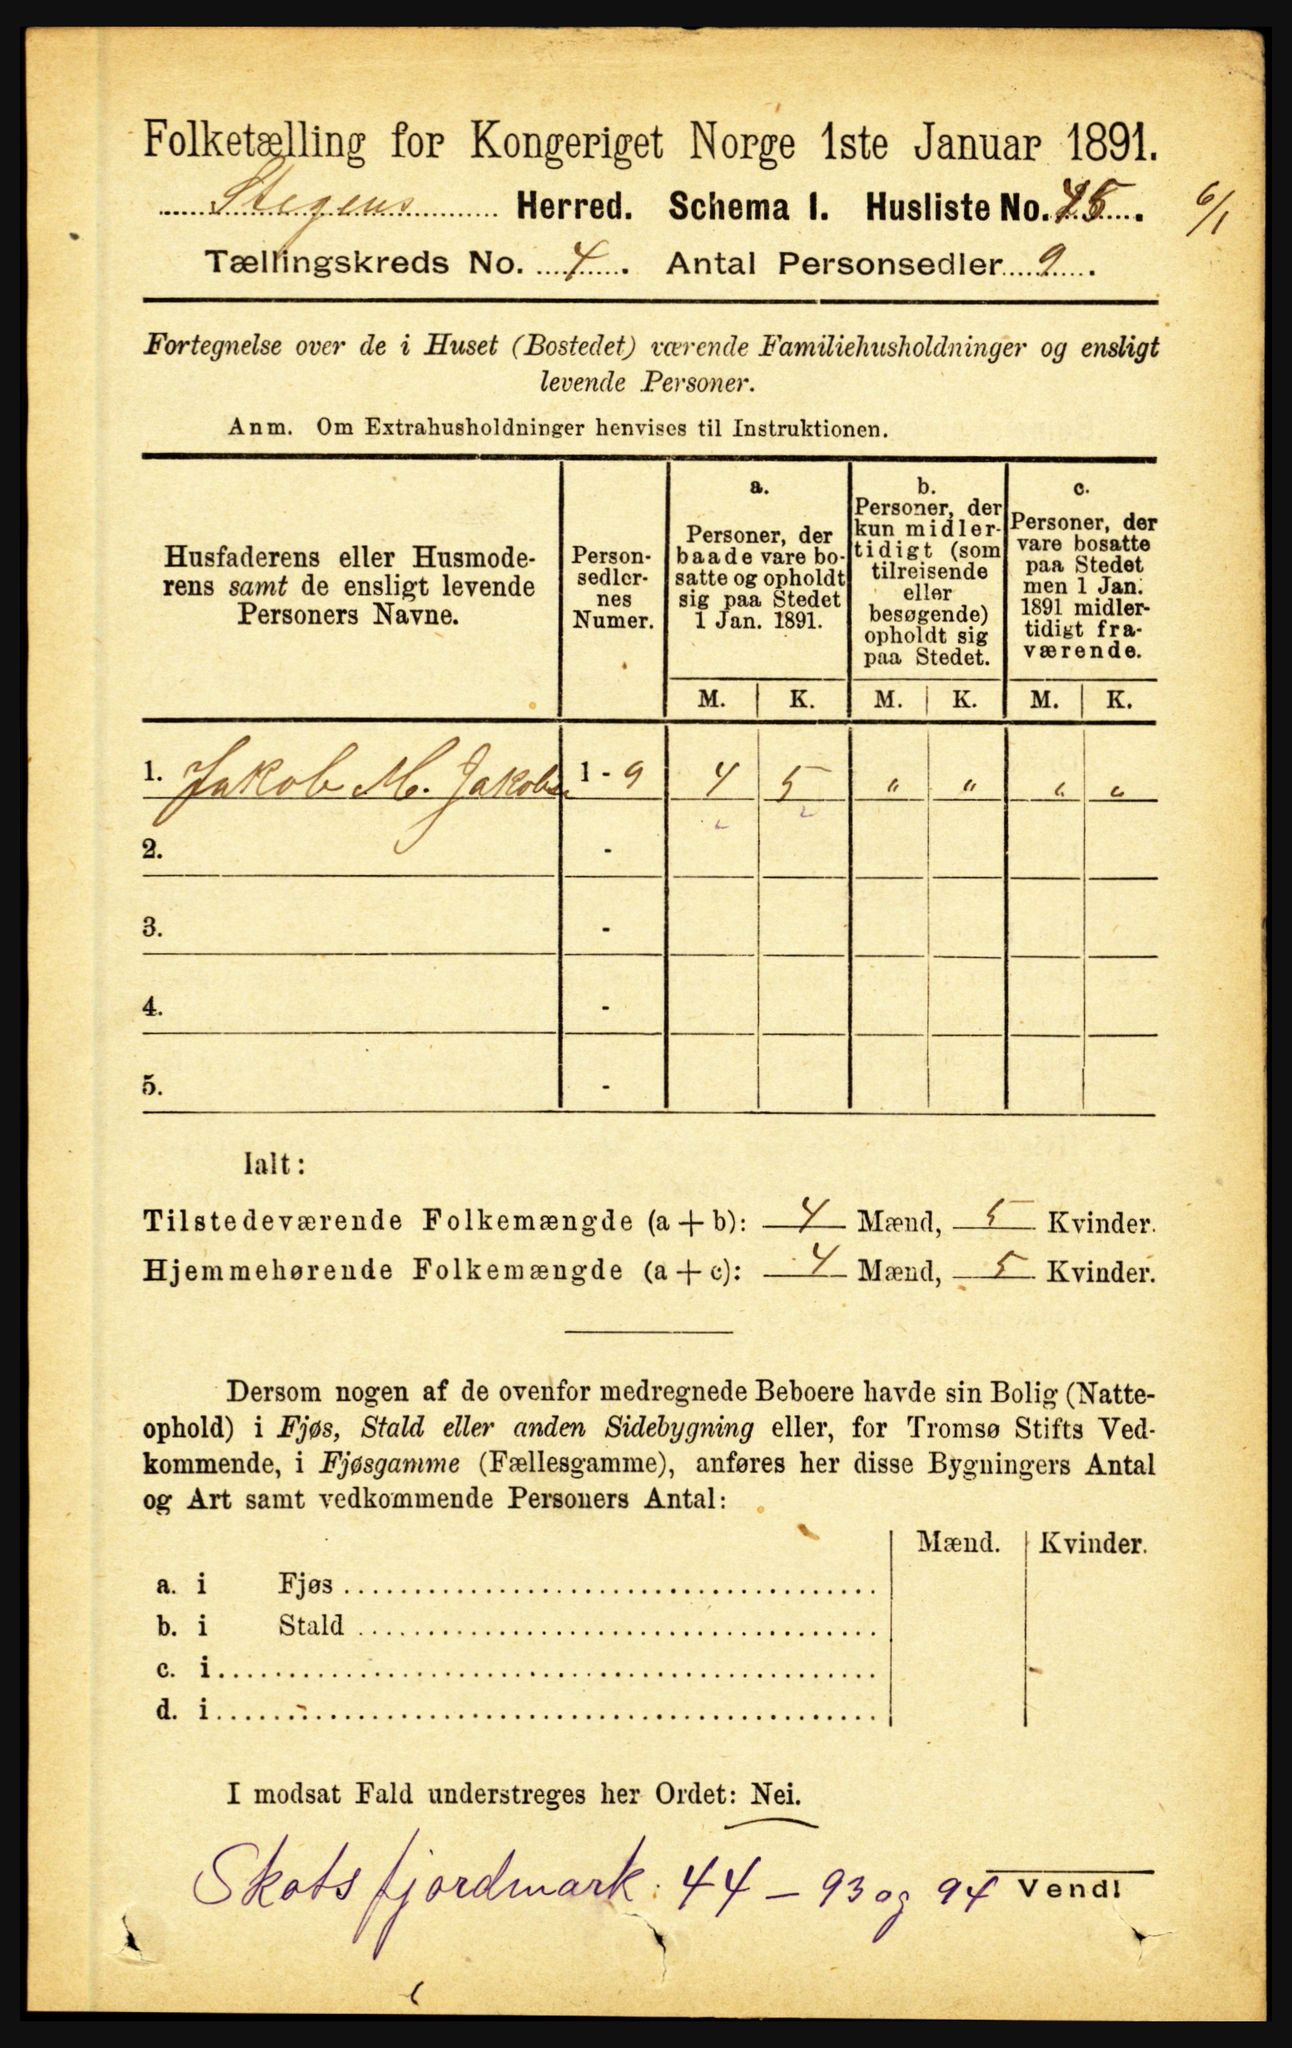 Folketælling for Kongeriget Norge 1ste Januar 1891.
Stegens Herred. Schema I. Husliste No. 45.
6/1
Tællingskreds No. 4. Antal Personsedler 9.
Fortegnelse over de i Huset (Bostedet) værende Familiehusholdninger og ensligt
levende Personer.
Anm. Om Extrahusholdninger henvises til Instruktionen.
Husfaderens eller Husmode-
rens samt de ensligt levende
Personers Navne.
Person-
sedler-
nes
Numer.
a.
Personer, der
baade vare bo-
satte og opholdt
sig paa Stedet
1 Jan. 1891.
b.
Personer, der
kun midler-
tidigt (som
tilreisende
eller
besøgende)
opholdt sig
paa Stedet.
c.
Personer, der
vare bosatte
paa Stedet
men 1 Jan.
1891 midler-
tidigt fra-
værende.
M. K. M. K. M. K.
1. Jakob M. Jakobsen 1 - 9 4 5 " " " "
2. -
3. -
4. -
5. -
Ialt:
Tilstedeværende Folkemængde (a + b): 4 Mænd, 5 Kvinder.
Hjemmehørende Folkemængde (a + c): 4 Mænd, 5 Kvinder.
Dersom nogen af de ovenfor medregnede Beboere havde sin Bolig (Natte-
ophold) i Fjøs, Stald eller anden Sidebygning eller, for Tromsø Stifts Ved-
kommende, i Fjøsgamme (Fællesgamme), anføres her disse Bygningers Antal
og Art samt vedkommende Personers Antal:
Mænd. Kvinder.
a. i Fjøs
b. i Stald
c. i
d. i
I modsat Fald understreges her Ordet: Nei.
Skotsfjordmark. 44 - 93 og 94
Vend!